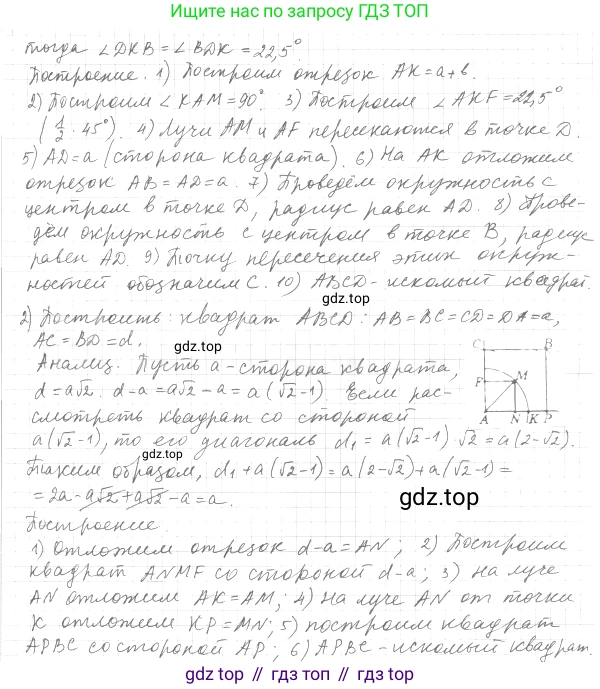 Ищите нас по запросу ГДЗ ТОП
тогда ∠DKB = ∠BDK = 22,5°
Построение. 1) Построим отрезок AK=a+b.
2) Построим ∠KAM=90°. 3) Построим ∠AKF=22,5°
(1/2 · 45°). 4) Лучи AM и AF пересекаются в точке D.
5) AD=a (сторона квадрата). 6) На AK отложим
отрезок AB=AD=a. 7) Проведём окружность с
центром в точке D, радиус равен AD. 8) Прове-
дём окружность с центром в точке B, радиус
равен AD. 9) Точку пересечения этих окруж-
ностей обозначим C. 10) ABCD - искомый квадрат.
gdz.top
2) Построить: квадрат ABCD: AB=BC=CD=DA=a,
AC=BD=d.
gdz.top
Анализ. Пусть a - сторона квадрата,
d=a√2. d-a=a√2-a=a(√2-1). Если рас-
смотреть квадрат со стороной
a(√2-1), то его диагональ d₁=a(√2-1)·√2=a(2-√2).
C B
F M
A N K P
Таким образом, d₁+a(√2-1)=a(2-√2)+a(√2-1)=
=2a-a√2+a√2-a=a.
gdz.top
Построение.
1) Отложим отрезок d-a=AN; 2) Построим
квадрат ANMF со стороной d-a; 3) На луче
AN отложим AK=AM; 4) На луче AN от точки
K отложим KP=MN; 5) построим квадрат
APBC со стороной AP; 6) APBC - искомый квадрат.
gdz top // гдз топ // gdz top // гдз топ